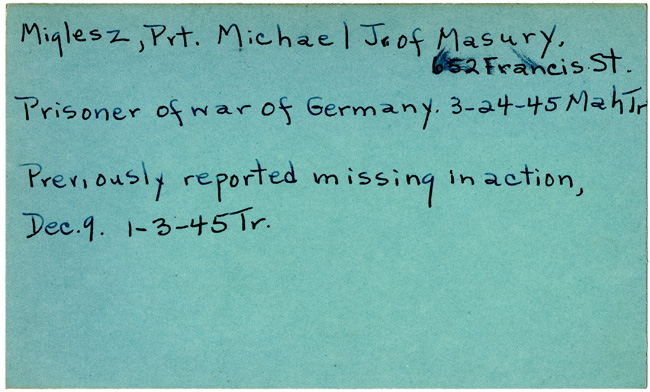 Miglesz, Prt. Michael J. of Masury,
652 Francis St.
Prisoner of war of Germany. 3-24-45 Mah Tr
Previously reported missing in action,
Dec. 9. 1-3-45 Tr.